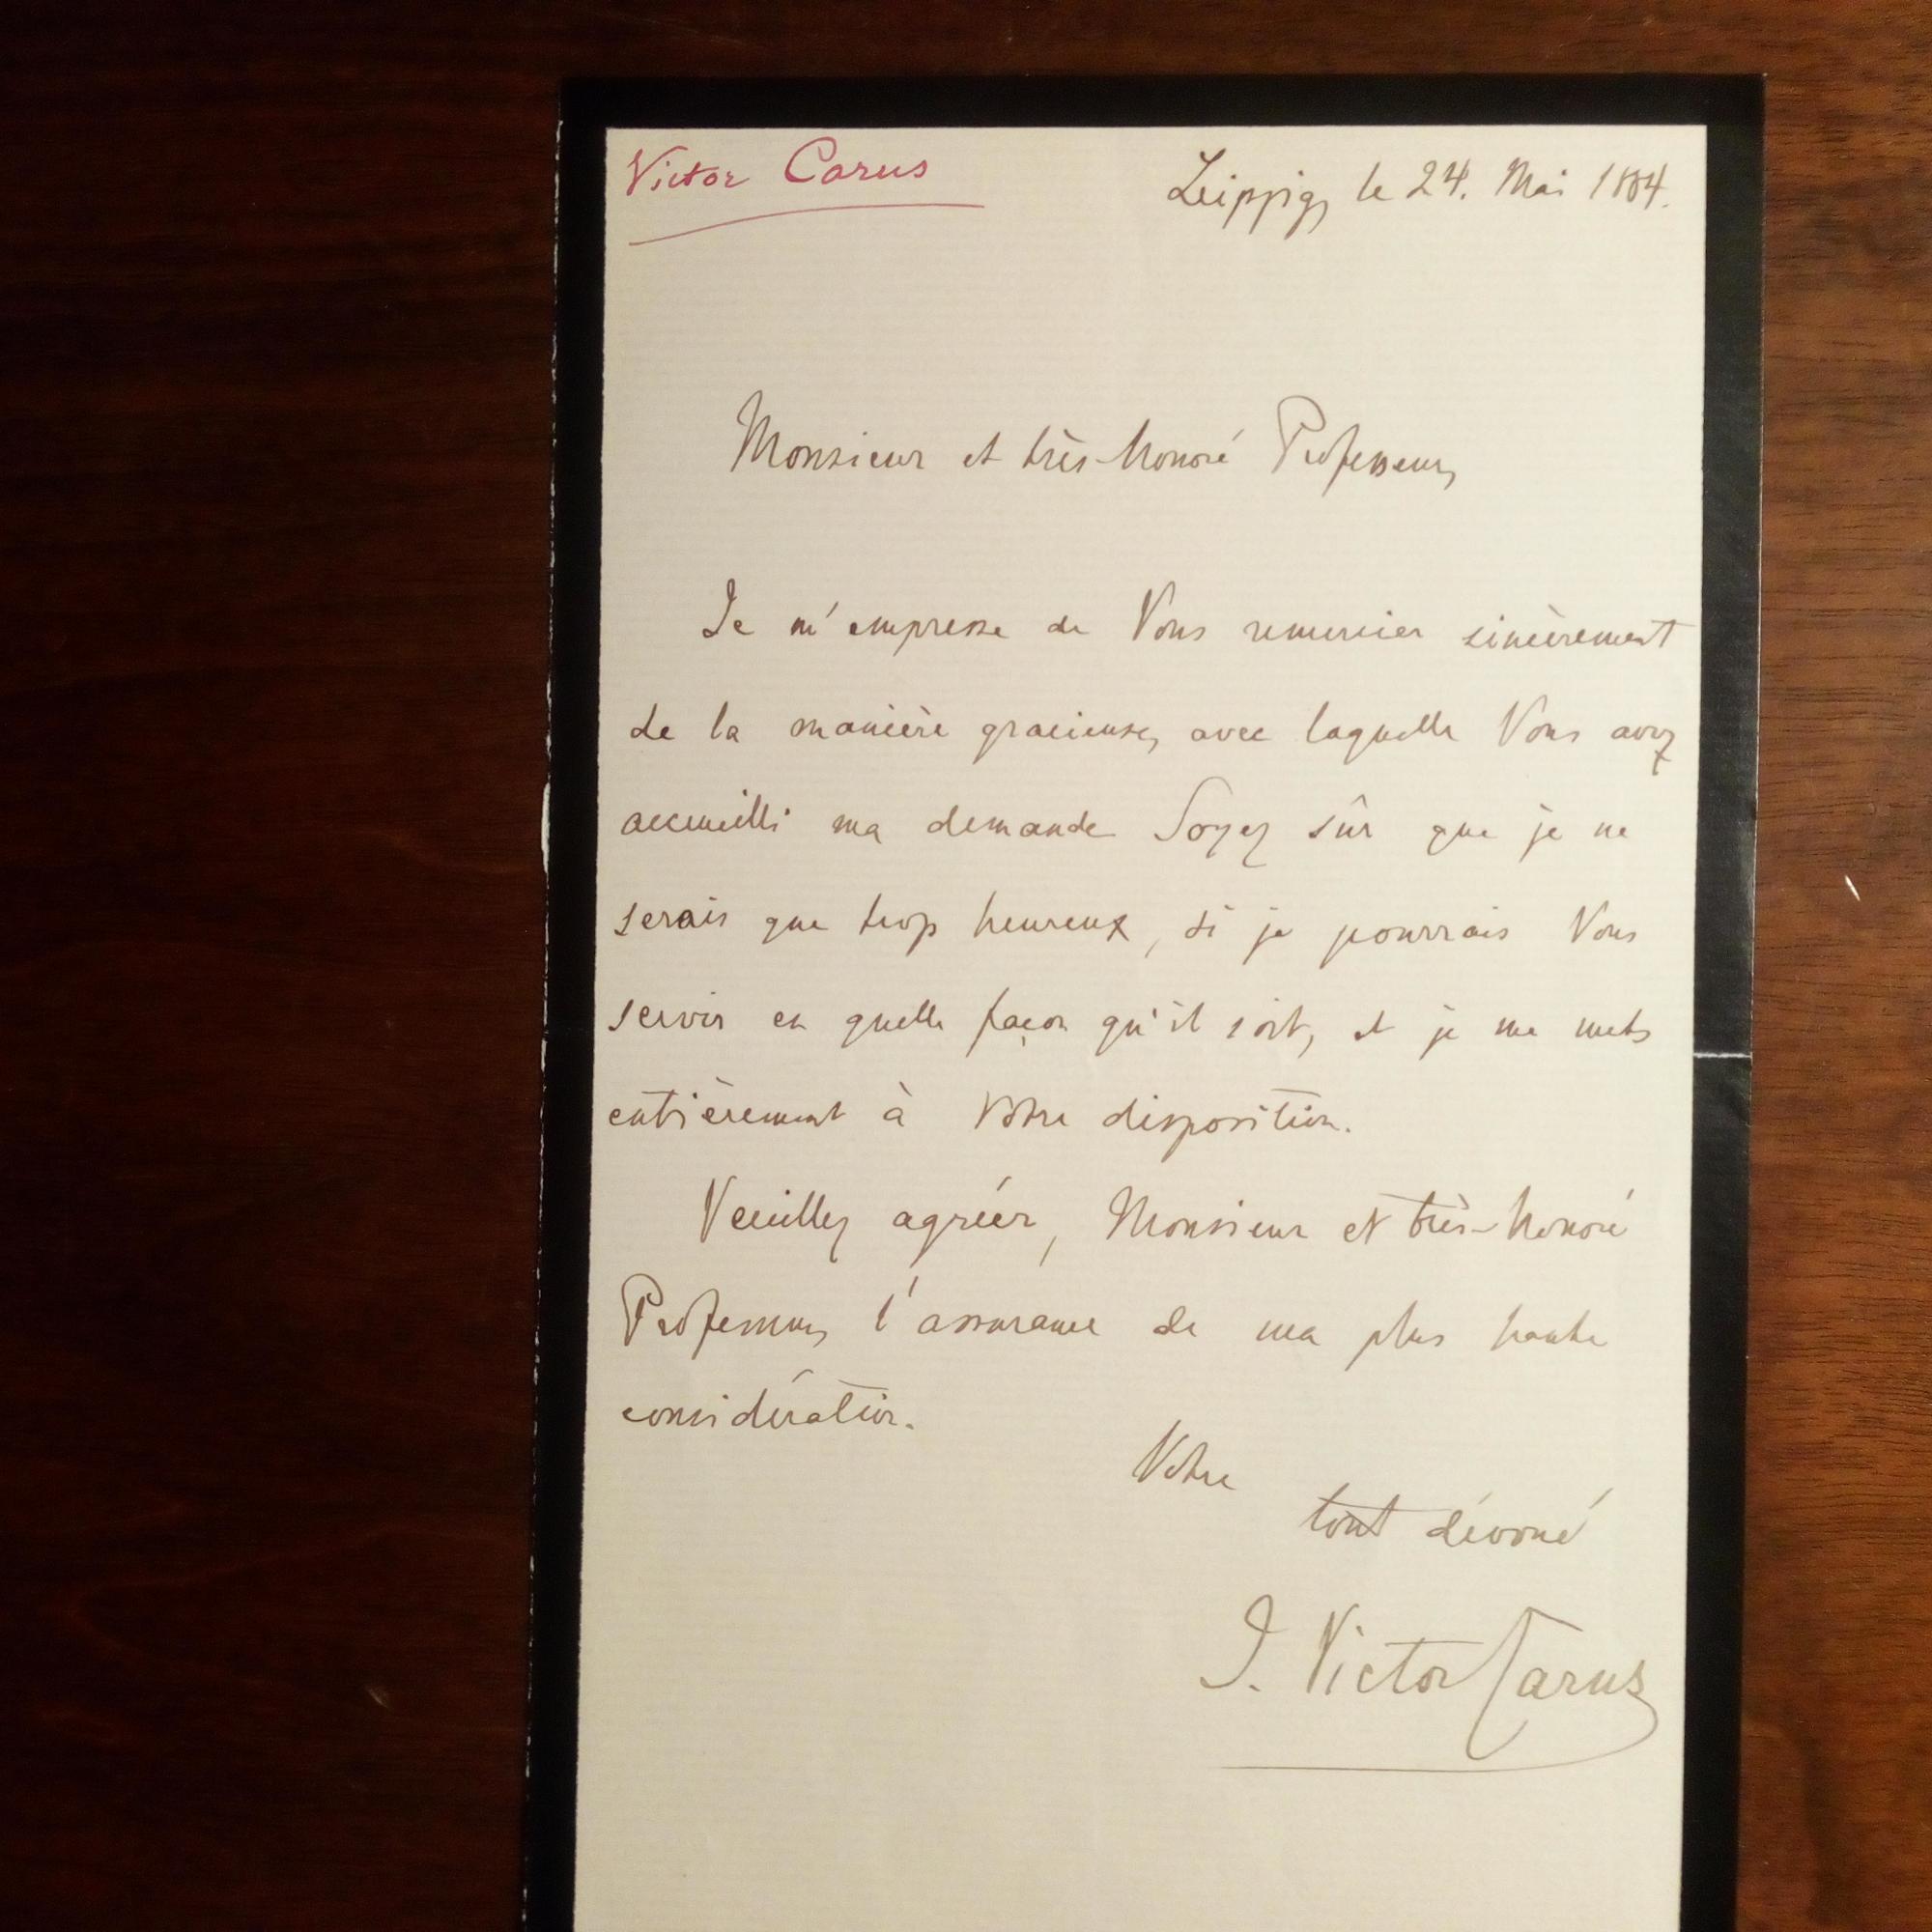 Victor Carus
Leipzig, le 24. Mai 1884.
Monsieur et très-honoré Professeur,
Je m'empresse de Vous remercier sincèrement
de la manière gracieuse, avec laquelle Vous avez
accueilli ma demande Soyez sûr que je ne
serais que trop heureux, si je pourrais Vous
servir en quelle façon qu'il soit, et je me mets
entièrement à Votre disposition.
Veuillez agréer, Monsieur et très-honoré
Professeur, l'assurance de ma plus haute
considération.
Votre
tout dévoué
J. Victor Carus